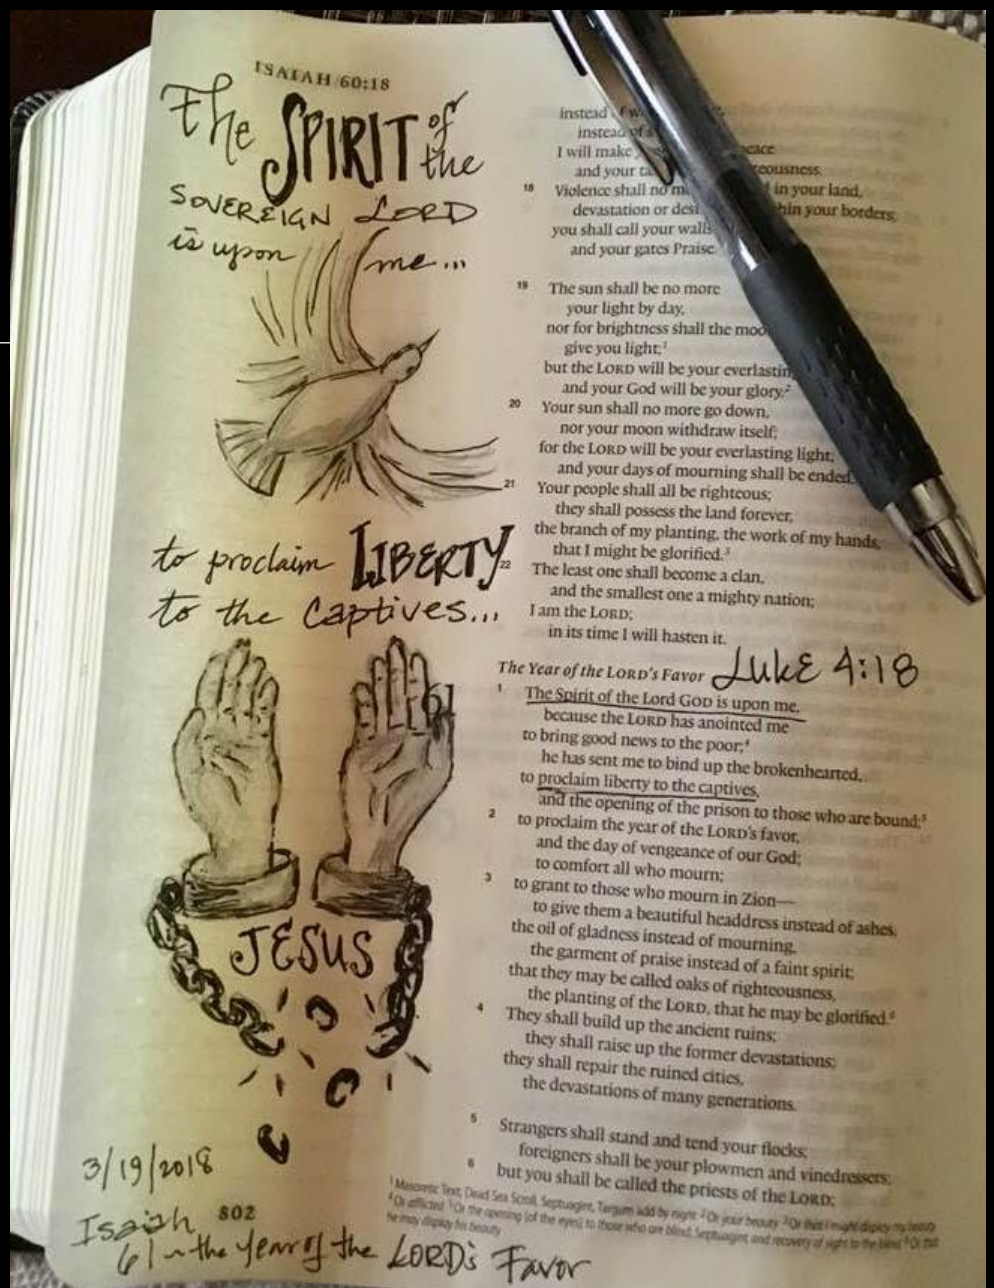 ISAIAH 60:18
The SPIRIT of the
SOVEREIGN LORD
is upon me...
to proclaim LIBERTY
to the Captives...
JESUS
3/19/2018
802
Isaiah
61 ~ the Year of the LORD's Favor
instead
instead of
I will make
and your
18 Violence shall no in your land,
devastation or your borders;
you shall call your walls
and your gates Praise.
19 The sun shall be no more
your light by day,
nor for brightness shall the
give you light;1
but the LORD will be your
and your God will be your glory.2
20 Your sun shall no more go down,
nor your moon withdraw itself;
for the LORD will be your everlasting light,
and your days of mourning shall be ended.
21 Your people shall all be righteous;
they shall possess the land forever,
the branch of my planting, the work of my hands,
that I might be glorified.3
22 The least one shall become a clan,
and the smallest one a mighty nation;
I am the LORD;
in its time I will hasten it.
The Year of the LORD's Favor Luke 4:18
61
1 The Spirit of the Lord GOD is upon me,
because the LORD has anointed me
to bring good news to the poor;4
he has sent me to bind up the brokenhearted,
to proclaim liberty to the captives,
and the opening of the prison to those who are bound;5
2 to proclaim the year of the LORD's favor,
and the day of vengeance of our God;
to comfort all who mourn;
3 to grant to those who mourn in Zion—
to give them a beautiful headdress instead of ashes,
the oil of gladness instead of mourning,
the garment of praise instead of a faint spirit;
that they may be called oaks of righteousness,
the planting of the LORD, that he may be glorified.6
4 They shall build up the ancient ruins;
they shall raise up the former devastations;
they shall repair the ruined cities,
the devastations of many generations.
5 Strangers shall stand and tend your flocks;
foreigners shall be your plowmen and vinedressers;
6 but you shall be called the priests of the LORD;
1 Masoretic Text; Dead Sea Scroll, Septuagint, Targum add by night 2 Or your beauty 3 Or that I might display my beauty
4 Or afflicted 5 Or the opening [of the eyes] to those who are blind; Septuagint and recovery of sight to the blind 6 Or that
he may display his beauty